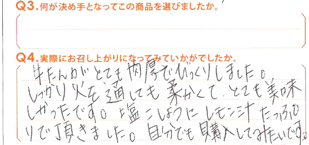 Q3.何が決め手となってこの商品を選びましたか。
Q4.実際にお召し上がりになってみていかがでしたか。
牛たんがとても肉厚でびっくりしました。
しっかり火を通しても柔かくて、とても美味
しかったです。塩こしょうにレモン汁たっぷ
りで頂きました。自分でも購入してみたいです。